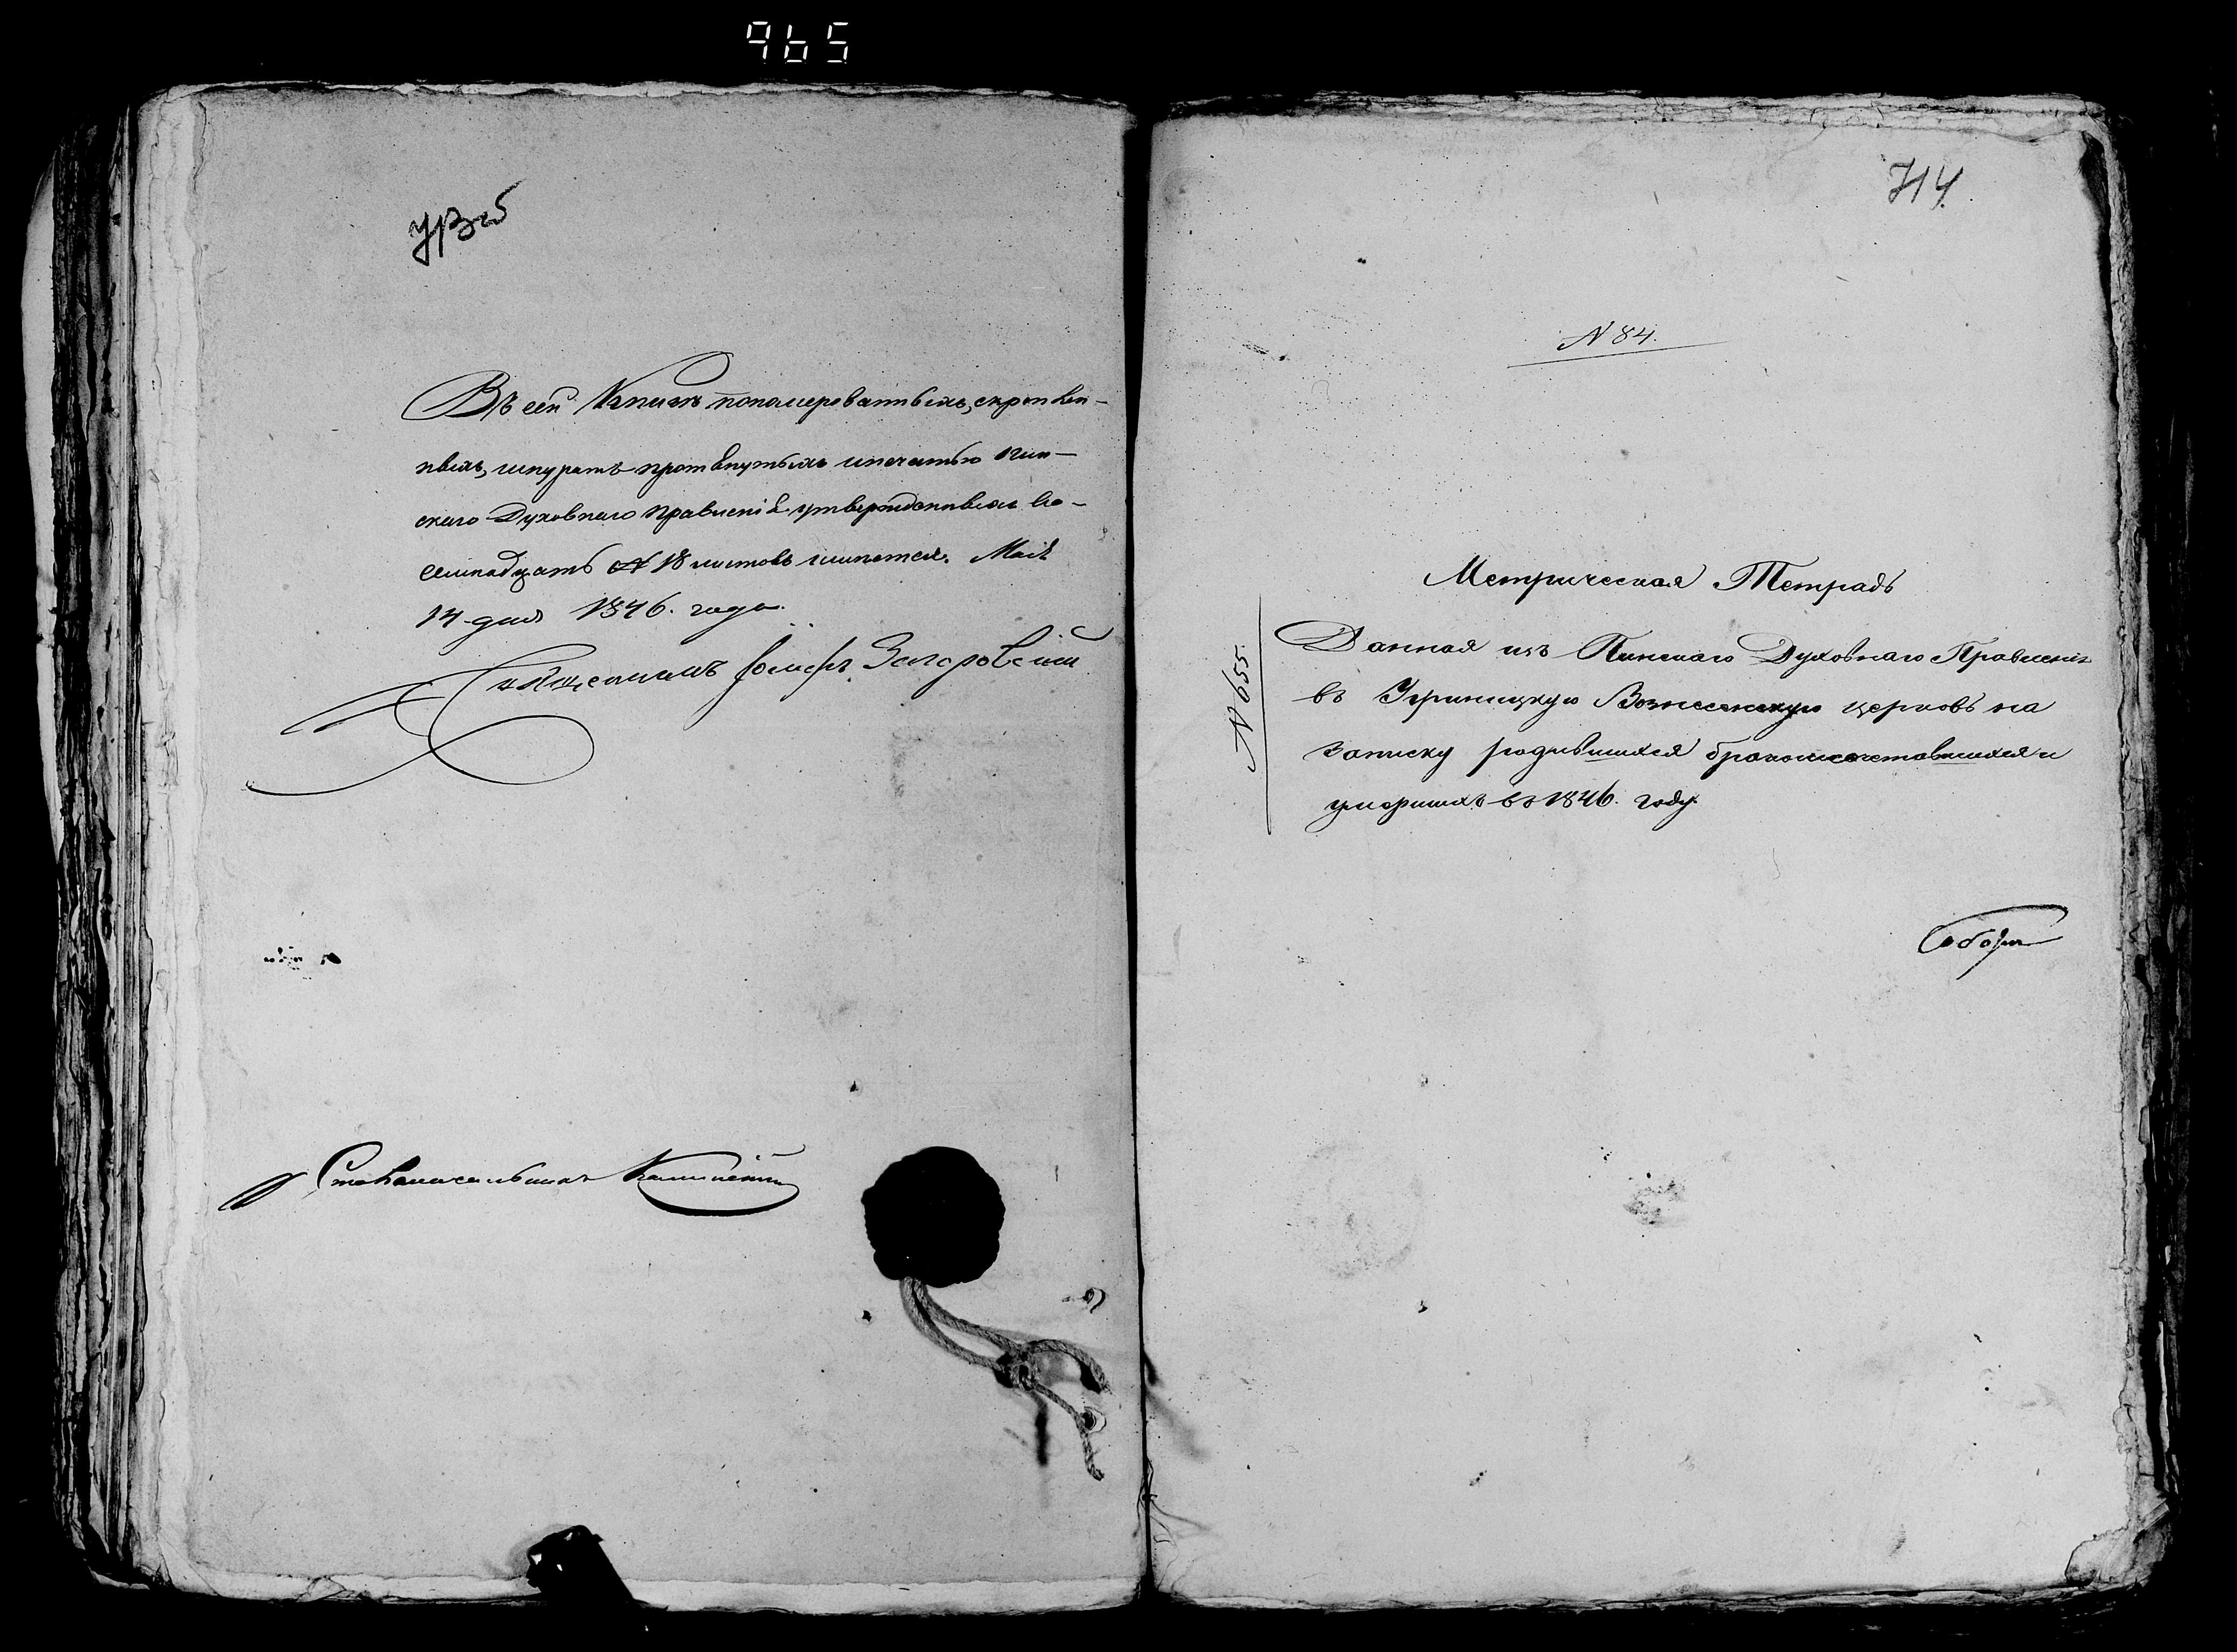 965
Въ сей Книгѣ пономерованныхъ, скрѣплен-
ныхъ, шнуромъ протянутыхъ и печатью Пин-
скаго Духовнаго Правленія утвержденныхъ во-
семнадцать 18 листовъ имѣется. Маія
14 дня 1846. года.
Іосифъ Загоровскій
Столоначальникъ
714.
N 84.
Метрическая Тетрадь
N 655.
Данная изъ Пинскаго Духовнаго Правленія
въ Угриницкую Вознесенскую церковь на
записку родившихся бракосочетавшихся и
умершихъ въ 1846. году.